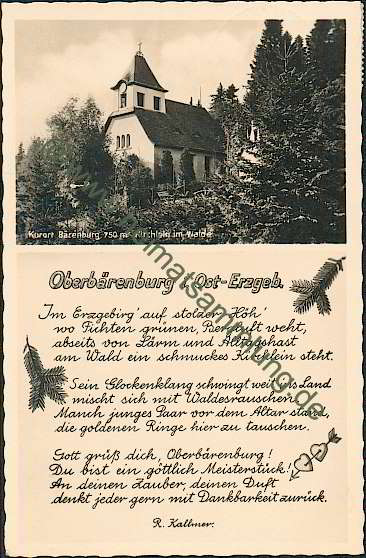 Kurort Bärenburg, 750 m. Kirchlein im Walde
Oberbärenburg i. Ost-Erzgeb.
Im Erzgebirg' auf stolzer Höh'
wo Fichten grünen, Bergluft weht,
abseits von Lärm und Alltagshast
am Wald ein schmuckes Kirchlein steht.
Sein Glockenklang schwingt weit ins Land
mischt sich mit Waldesrauschen.
Manch junges Paar vor dem Altar stand,
die goldenen Ringe hier zu tauschen.
Gott grüß dich, Oberbärenburg!
Du bist ein göttlich Meisterstück!
An deinen Zauber, deinen Duft
denkt jeder gern mit Dankbarkeit zurück.
R. Kallmer.
heimatsammlung.de